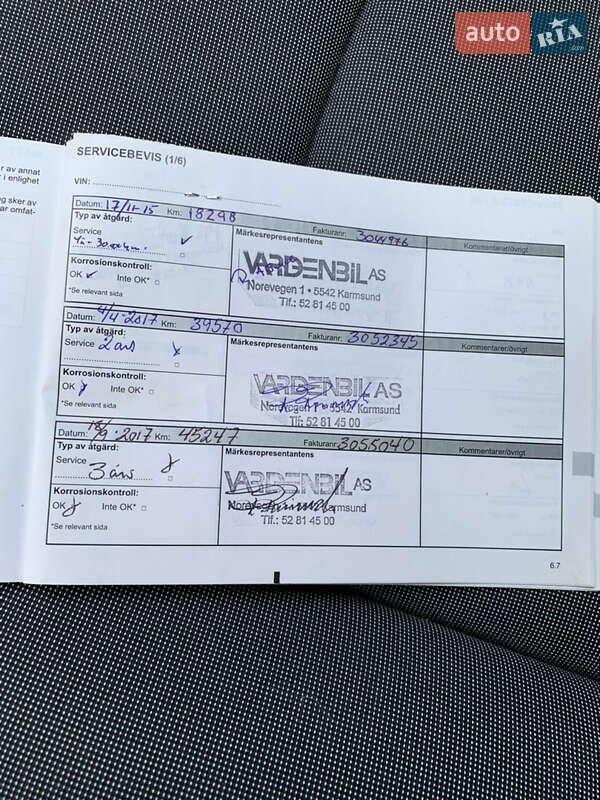 auto RIA.com
r av annat
r i enlighet
g sker av
ar omfat-
SERVICEBEVIS (1/6)
VIN:
Datum: 17/11-15 Km: 18298 Fakturanr: 3044976
Typ av åtgärd:
Service
Märkesrepresentantens
Kommentarer/övrigt
VARDENBIL AS
Norevegen 1 • 5542 Karmsund
Tlf.: 52 81 45 00
Korrosionskontroll:
OK Inte OK*
*Se relevant sida
Datum: 4/4-2017 Km: 39570 Fakturanr: 3052345
Typ av åtgärd:
Service 2 års
Märkesrepresentantens
Kommentarer/övrigt
VARDENBIL AS
Norevegen 1 • 5542 Karmsund
Tlf: 52 81 45 00
Korrosionskontroll:
OK Inte OK*
*Se relevant sida
Datum: 18/9-2017 Km: 45247 Fakturanr: 3055040
Typ av åtgärd:
Service 3 års
Märkesrepresentantens
Kommentarer/övrigt
VARDENBIL AS
Karmsund
Tlf.: 52 81 45 00
Korrosionskontroll:
OK Inte OK*
*Se relevant sida
6.7